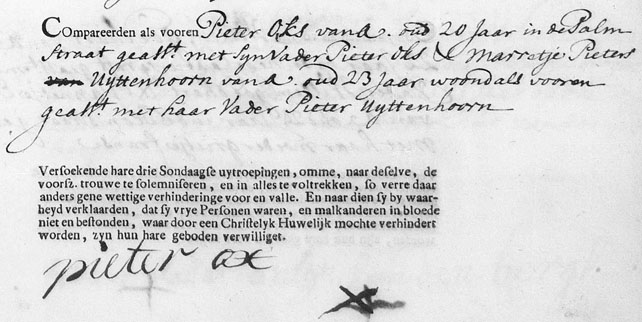 Compareerden als vooren Pieter Oks van A. oud 20 Jaar in de Palm
Straat geass.t met Syn Vader Pieter Oks & Marretje Pieters
van Uyttenhoorn van A. oud 23 Jaar woond als vooren
geass.t met haar Vader Pieter Uyttenhoorn
Versoekende hare drie Sondaagse uytroepingen, omme, naar deselve, de
voorsz. trouwe te solemniseren, en in alles te voltrekken, so verre daar
anders gene wettige verhinderinge voor en valle. En naar dien sy by waar-
heyd verklaarden, dat sy vrye Personen waren, en malkanderen in bloede
niet en bestonden, waar door een Christelyk Huwelijk mochte verhindert
worden, zyn hun hare geboden verwilliget.
pieter ox